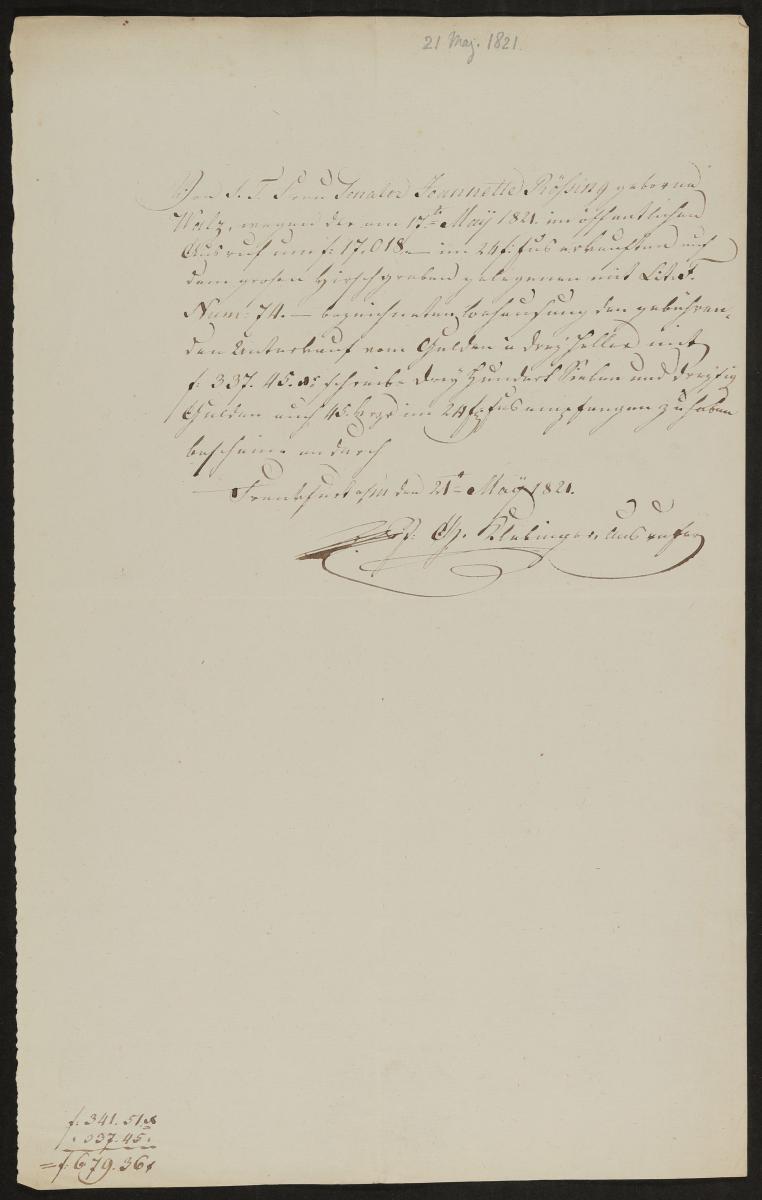 21 Maj. 1821.
Von S. T. Frau Senator Jeannette Rößing geborne
Walz, wegen der am 17te May 1821. im öffentlichen
Ausruf um f: 17,018.— im 24 f: fus erkauften auf
dem grosen Hirschgraben gelegenen mit Lit. F.
Num: 74.— bezeichneten behausung den gebühren-
den Unterkauf vom Gulden a drey Heller mit
f: 337. 45. xr schreibe Drey Hundert Sieben und dreysig
Gulden auch 45 kreuzer im 24 f: fus empfangen zu haben
bescheine andurch
Frankfurt a/M den 21t May 1821.
Ch. Klebinger, Ausrufer
f. 341. 51. x
" 337. 45.
= f. 679. 36 x